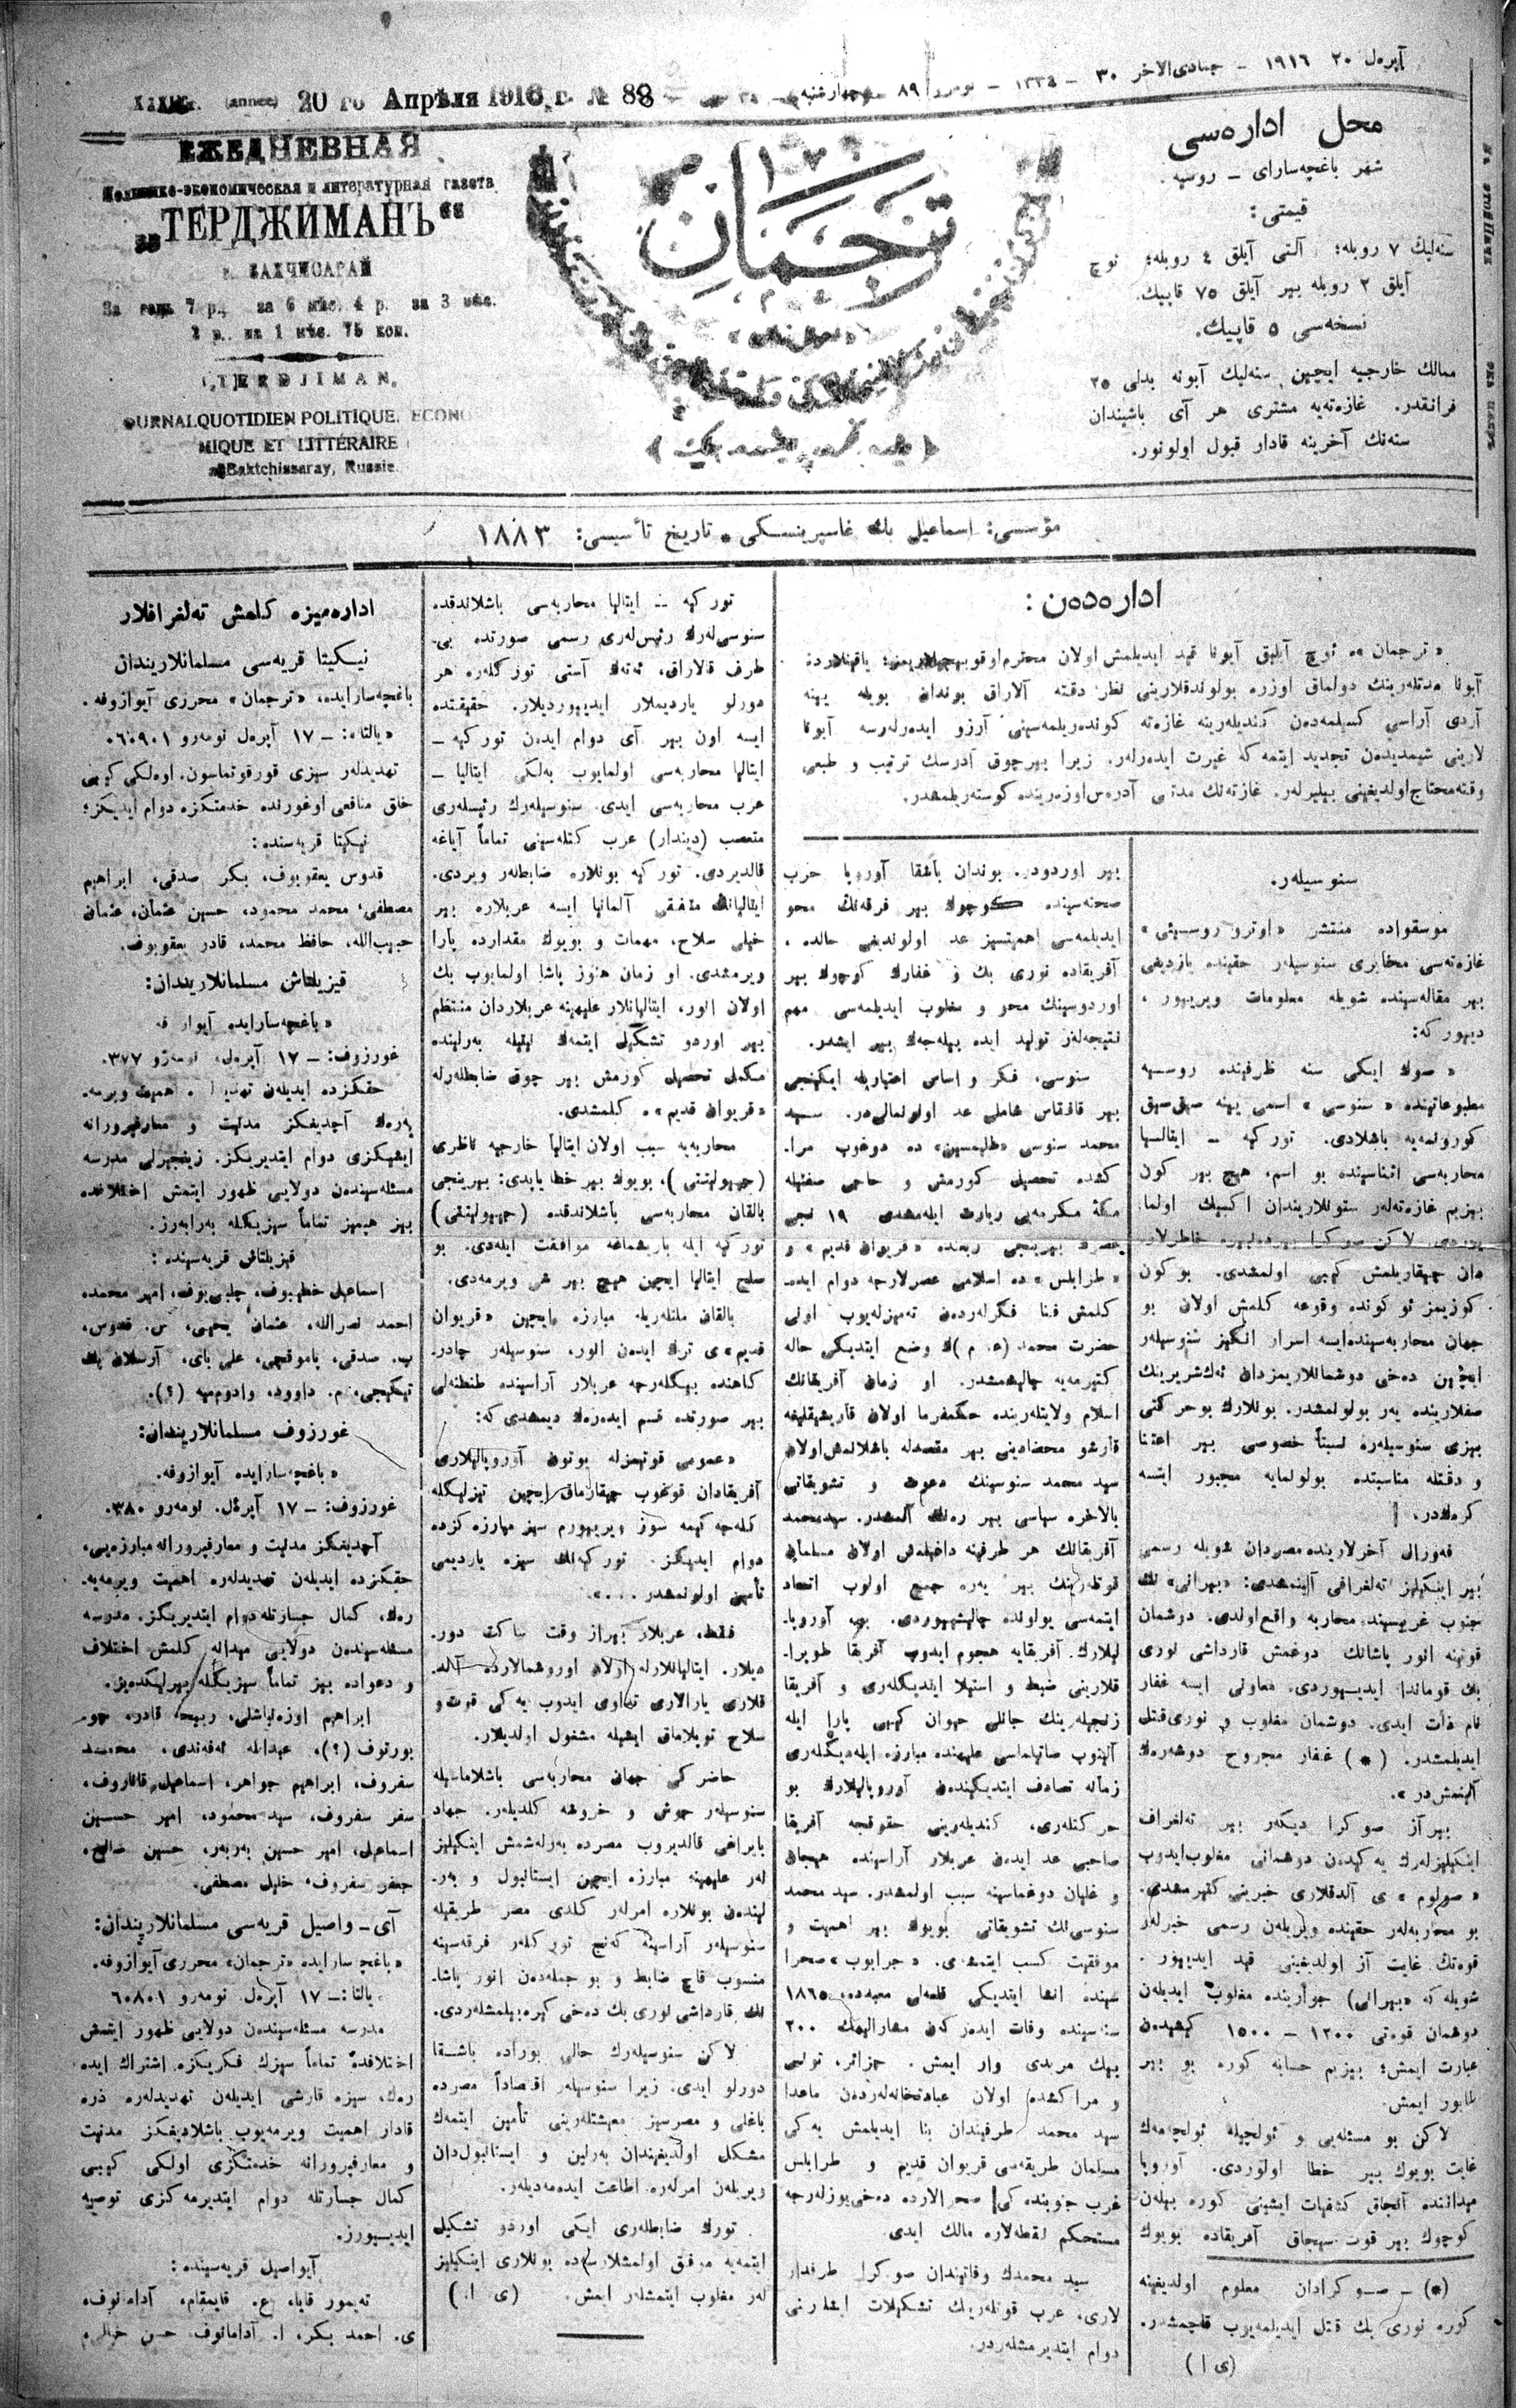 آپرەل ٢٠ ١٩١٦ – جمادی‌الاخر ٣٠ – ١٣٣٤ – نومرو ٨٩ چهارشنبه
20 го Апрѣля 1916 г. № 88
محل اداره‌سی
شهر باغچه‌سارای – روسیه.
قیمتی:
سنه‌لیك ٧ روبله؛ آلتی آیلق ٤ روبله؛ ئوچ
آیلق ٢ روبله بیر آیلق ٧٥ قاپیك.
نسخه‌سی ٥ قاپیك.
ممالك خارجیه ایچین سنه‌لیك آبونه بدلی ٢٥
فرانقدر. غازه‌ته‌یه مشتری هر آی باشیندان
سنه‌نك آخرینه قادار قبول اولونور.
ترجمان
ЕЖЕДНЕВНАЯ
Политико-экономическая и литературная газета
„ТЕРДЖИМАНЪ“
г. БАХЧИСАРАЙ
За годъ 7 р., за 6 мѣс. 4 р. за 3 мѣс.
2 р. на 1 мѣс. 75 коп.
„TERDJIMAN„
JOURNAL QUOTIDIEN POLITIQUE, ECONO
MIQUE ET LITTÉRAIRE
a Baktchissaray, Russie.
مؤسسی: اسماعیل بك غاسپرینسکی • تاریخ تأسیسی: ١٨٨٣
اداره‌دەن:
« ترجمان »ه ئوچ آیلیق آبونا قید ایدیلمش اولان محترم اوقوییجیلاریمز؛ یاقینلارده
آبونا مدتله‌رینك دولماق اوزره بولوندقلارینی نظر دقته آلاراق بوندان بویله یینه
آردی آراسی کسیلمه‌دەن کندیله‌رینه غازه‌ته کونده‌ریلمه‌سینی آرزو ایده‌رله‌رسه آبونا
لارینی شیمدیدەن تجدید ایتمه‌که غیرت ایده‌رله‌ر. زیرا بیرچوق آدرسك ترتیب و طبعی
وقته محتاج اولدیغینی بیلیرله‌ر. غازته‌نك مدتی آدره‌س اوزه‌رینده کوسته‌ریلمشدر.
سنوسیله‌ر.
موسقواده منتشر «اوترو روسیئی»
غازه‌ته‌سی مخابری سنوسیله‌ر حقینده یازدیغی
بیر مقاله‌سینده شویله معلومات ویرییور،
دییور که:
« صوك ایکی سنه ظرفینده روسیه
مطبوعاتینده « سنوسی » اسمی یینه صیق صیق
کورونمه‌یه باشلادی. تورکیه – ایتالیا
محاربه‌سی اثناسینده بو اسم، هیچ بیر کون
بیزیم غازه‌ته‌لەر ستونلاریندان اکسیك اولما
یوردی. لاکن صوکرا بیردەنبیره خاطرلار
دان چیقاریلمش کیبی اولمشدی. بوکون
کوزیمز ئوکونده وقوعه کلمش اولان بو
جهان محاربه‌سینده ایسه اسرار انگیز سنوسیله‌ر
ایچین دەخی دوشمانلاریمزدان
صفلارینده یەر بولولمشدر. بونلارك بو حرکتی
بیزی سنوسیله‌ره نسبتاً خصوصی بیر اعتنا
و دقتله مناسبتده بولولمایه مجبور ایتسه
کره‌کدر.
فه‌ورال آخرلارینده مصردان شویله رسمی
بیر اینگیلیز ته‌لغرافی آلینمشدی: «بهرانی» نك
جنوب غربیسینده محاربه واقع اولدی. دوشمان
قوتینه انور پاشانك دوغمش قارداشی نوری
بك قوماندا ایدییوردی. معاونی ایسه غفار
نام ذات ایدی. دوشمان مغلوب و نوری قتل
ایدیلمشدر. (*) غفار مجروح دوشه‌رەك
آلینمش در ».
بیر آز صوکرا دیکەر بیر ته‌لغراف
اینگیلیزله‌رك یەکیدەن دوشمانی مغلوب ایدوب
« صولوم » ی آلدقلاری خبرینی کتیرمشدی.
بو محاربه‌لەر حقینده ویریلەن رسمی خبرلەر
قوەتك غایت آز اولدیغینی قید ایدییور.
شویله که «بهرانی» جوارینده مغلوب ایدیلەن
دوشمان قوەتی ١٢٠٠ – ١٥٠٠ کیشیدەن
عبارت ایمش؛ بیزیم حسابه کوره بو بیر
تابور ایمش.
لاکن بو مسئله‌یی بو ئولچیله ئولچه‌مەك
غایت بویوك بیر خطا اولوردی. آوروپا
میداننده آنجاق کشفیات ایشینی کوره بیلەن
کوچوك بیر قوت سیجاق آفریقاده بویوك
(*) – صوکرادان معلوم اولدیغینه
کوره نوری بك قتل ایدیلمه‌یوب قاچمشدر.
(ی ا)
بیر اوردودر. بوندان باشقا آوروپا حرب
صحنه‌سینده کوچوك بیر فرقه‌نك محو
ایدیلمه‌سی اهمیتسیز عد اولولدیغی حالده،
آفریقاده نوری بك و غفارك کوچوك بیر
اوردوسینك محو و مغلوب ایدیلمه‌سی مهم
نتیجه‌لەر تولید ایده بیله‌جەك بیر ایشدر.
سنوسی، فکر و اساس اعتباریله ایکینجی
بیر قافقاس شاملی عد اولونمالی‌در. سید
محمد سنوسی «طلیمسین» ده دوغوب مرا
کشده تحصیل کورمش و حاجی صفتیله
مکهٔ مکرمه‌یی زیارت ایله‌مشدی ١٩ نجی
عصرك بیرینجی ربعنده «قریوان قدیم» و
« طرابلس » ده اسلامی عصرلارجه دوام ایدە
کلمش فنا فکرله‌ردەن ته‌میزله‌یوب اولی
حضرت محمد (ع. م)ك وضع ایتدیکی حاله
کتیرمه‌یه چالیشمشدر. او زمان آفریقانك
اسلام ولایتله‌رینده حکمفرما اولان قاریشیقلیغه
قارشو محضادینی بیر مقصدله باشلانمش اولان
سید محمد سنوسینك دعوت و تشویقاتی
بالاخره سیاسی بیر رەنك آلمشدر. سید محمد
آفریقانك هر طرفینه داغیلمش اولان مسلمان
قوتله‌رینك بیر یەره جمع اولوب اتحاد
ایتمه‌سی یولولده چالیشییوردی. بیه آوروپا
لیلارك آفریقایه هجوم ایدوب آفریقا طوپرا
قلارینی ضبط و استیلا ایتدیکله‌ری و آفریقا
زنجیله‌رینك جانلی حیوان کیبی پارا ایله
آلینوب صاتیلماسی علیهینده مبارزه ایله‌دیکله‌ری
زمانه تصادف ایتدیکیندەن آوروپالیلارك بو
حرکتله‌ری، کندیله‌رینی حقوقجه آفریقا
صاحبی عد ایدەن عربلار آراسینده هیجان
و غلیان دوغماسینه سبب اولمشدر. سید محمد
سنوسی‌نك تشویقاتی بویوك بیر اهمیت و
موفقیت کسب ایتمشدی. «جرابوب» صحرا
سینده انشا ایتدیکی قلعه‌لی معبدده، ١٨٦٥
سنه‌سینده وفات ایده‌رکەن مشارالیهك ٢٠٠
بیك مریدی وار ایمش. جزائر، تونس
و مراکشده اولان عبادتخانه‌له‌ردەن ماعدا
سید محمد طرفیندان بنا ایدیلمش یەکی
مسلمان طریقه‌سی قریوان قدیم و طرابلس
غرب جنوبنده‌کی صحرالارده دەخی یوزلەرجه
مستحکم نقطه‌لاره مالك ایدی.
سید محمدك وفاتیندان صوکرا طرفدار
لاری، عرب قوتله‌رینك تشکیلات ایشلرنی
دوام ایتدیرمشله‌ردر.
تورکیه – ایتالیا محاربه‌سی باشلاندقده
سنوسی‌لەرك رئیس‌لەری رسمی صورتده بی
طرف قالاراق، ئەتەك آستی تورکله‌ره هر
دورلو یاردیملار ایدییوردیلار. حقیقتده
ایسه اون بیر آی دوام ایدەن تورکیه –
ایتالیا محاربه‌سی اولمایوب بەلکی ایتالیا –
عرب محاربه‌سی ایدی. سنوسیله‌رك رئیسله‌ری
متعصب (دیندار) عرب کتله‌سینی تماماً آیاغه
قالدیردی. تورکیه بونلاره ضابطلەر ویردی.
ایتالیانك متفقی آلمانیا ایسه عربلاره بیر
خیلی سلاح، مهمات و بویوك مقدارده پارا
ویرمشدی. او زمان هنوز پاشا اولمایوب بك
اولان انور، ایتالیانلار علیهینه عربلاردان منتظم
بیر اوردو تشکیل ایتمەك نیتیله بەرلینده
مکمل تحصیل کورمش بیر چوق ضابطله‌رله
«قریوان قدیم»ه کلمشدی.
محاربه‌یه سبب اولان ایتالیا خارجیه ناظری
(جییولیتتی)، بویوك بیر خطا یاپدی: بیرینجی
بالقان محاربه‌سی باشلاندقده (جییولیتتی)
تورکیه ایله باریشماغه موافقت ایله‌دی. بو
صلح ایتالیا ایچین هیچ بیر شی ویرمه‌دی.
بالقان ملتله‌ریله مبارزه ایچین «قریوان
قدیم»ی ترك ایدەن انور، سنوسیله‌ر چادر
کاهنده بیکله‌رجه عربلار آراسینده طنطنه‌لی
بیر صورتده قسم ایده‌رەك دیمشدی که:
«عمومی قوتیمزله بوتون آوروپالیلاری
آفریقادان قوغوب چیقارماق ایچین تیزلیکله
کله‌جەکیمه سوز ویرییورم سیز مبارزه‌کزده
دوام ایدیکز. تورکیه‌نك سیزه یاردیمی
تأمین اولونمشدر . . . ».
فقط، عربلار بیراز وقت ساکت دور
دیلار. ایتالیانلارله اولان اوروشمالارده آلد
قلاری یارالاری تداوی ایدوب یەکی قوت و
سلاح توپلاماق ایشیله مشغول اولدیلار.
حاضرکی جهان محاربه‌سی باشلاماسیله
سنوسیله‌ر جوش و خروشه کلدیلەر. جهاد
بایراغی قالدیروب مصرده یەرله‌شمش اینگیلیز
لەر علیهینه مبارزه ایچین ایستانبول و بەر
لیندەن بونلاره امرلەر کلدی مصر طریقیله
سنوسیله‌ر آراسینه کەنج تورکلەر فرقه‌سینه
منسوب قاچ ضابط و بو جمله‌دەن انور پاشا
نك قارداشی نوری بك دەخی کیره بیلمشله‌ردی.
لاکن سنوسیله‌رك حالی بوراده باشقا
دورلو ایدی. زیرا سنوسیله‌ر اقتصاداً مصرده
باغلی و مصرسیز معیشتله‌رینی تأمین ایتمەك
مشکل اولدیغیندان بەرلین و ایستانبول‌دان
ویریلەن امرله‌ره اطاعت ایده‌مه‌دیلەر.
تورك ضابطله‌ری ایکی اوردو تشکیل
ایتمه‌یه موفق اولمشلارسه‌ده بونلاری اینگیلیز
لەر مغلوب ایتمشلەر ایمش. (ی ا.)
اداره‌میزه کلمش ته‌لغرافلار
نیکیتا قریه‌سی مسلمانلاریندان
باغچه‌سارایده، «ترجمان» محرری آیوازوفه.
«یالتا»: – ١٧ آپرەل نومەرو ٠٦٠٩٠١
تهدیدلەر سیزی قورقوتماسون، اوەلکی کیبی
خلق منافعی اوغورنده خدمتکزه دوام ایدیکز؛
نیکیتا قریه‌سنده:
قدوس یعقوبوف، بکر صدقی، ابراهیم
مصطفی، محمد محمود، حسین عثمان، عثمان
حبیب‌الله، حافظ محمد، قادر یعقوبوف.
قیزیلتاش مسلمانلاریندان:
«باغچه‌سارایده آیوازوفه
غورزوف: – ١٧ آپرەل، نومەرو ٣٧٧.
حقکزده ایدیلەن تهدیدلەره اهمیت ویرمه
یەرەك آچدیغکز مدنیت و معارفپرورانه
ایشیکزی دوام ایتدیریکز. زینجیرلی مدرسه
مسئله‌سیندەن دولایی ظهور ایتمش اختلافده
بیز هیمیز تماماً سیزیکله بەرابەرز.
قیزیلتاش قریه‌سینده:
اسماعیل خطیبوف، چلبی‌یوف، امیر محمد،
احمد نصرالله، عثمان یحیی، س. قدوس،
ب. صدقی، یاموقچی، علی بای، آرسلان بك
تیکیجی، م. داوود، وادوم‌میه (؟).
غورزوف مسلمانلاریندان:
«باغچه‌سارایده آیوازوفه.
غورزوف: – ١٧ آپرەل. نومەرو ٣٨٠.
آچدیغکز مدنیت و معارفپرورانه مبارزه‌یی،
حقیکزده ایدیلەن تهدیدلەره اهمیت ویرمه‌یە
رەك، کمال جسارتله دوام ایتدیریکز. مدرسه
مسئله‌سیندەن دولایی میدانه کلمش اختلاف
و دعواده بیز تماماً سیزیکله بیرلیکده‌یز.
ابراهیم اوزەنباشلی، ربیع قادر،
بورتوف (؟)، عبدالله ئەفەندی، محمد
سفروف، ابراهیم جواهر، اسماعیل قافاروف،
سفر سفروف، سید محمود، امیر حسین
اسماعیل، امیر حسین بەربەر، حسین صالح،
جعفر سفروف، خلیل مصطفی.
آی – واصیل قریه‌سی مسلمانلاریندان:
«باغچه سارایده «ترجمان» محرری آیوازوفه.
یالتا: – ١٧ آپرەل نومەرو ٦٠٨٠١
مدرسه مسئله‌سیندەن دولایی ظهور ایتمش
اختلافده تماماً سیزك فکریکزه اشتراك ایده
رەك، سیزه قارشی ایدیلەن تهدیدلەره ذره
قادار اهمیت ویرمه‌یوب باشلادیغکز مدنیت
و معارفپرورانه خدمتکزی اولکی کیبی
کمال جسارتله دوام ایتدیرمەکزی توصیه
ایدییورز.
آیواصیل قریه‌سینده:
تەیمور قایا، ع. قایمقام، آدامانوف،
ی. احمد بکر، ا. آدامانوف، حسن خیالی،